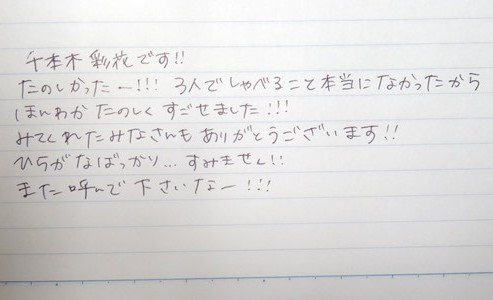 千本木 彩花です!!
たのしかったー!!! 3人でしゃべること本当になかったから
ほんわか たのしく すごせました!!!
みてくれたみなさんも ありがとうございます!!
ひらがなばっかり... すみません!!
また呼んで 下さいなー!!!